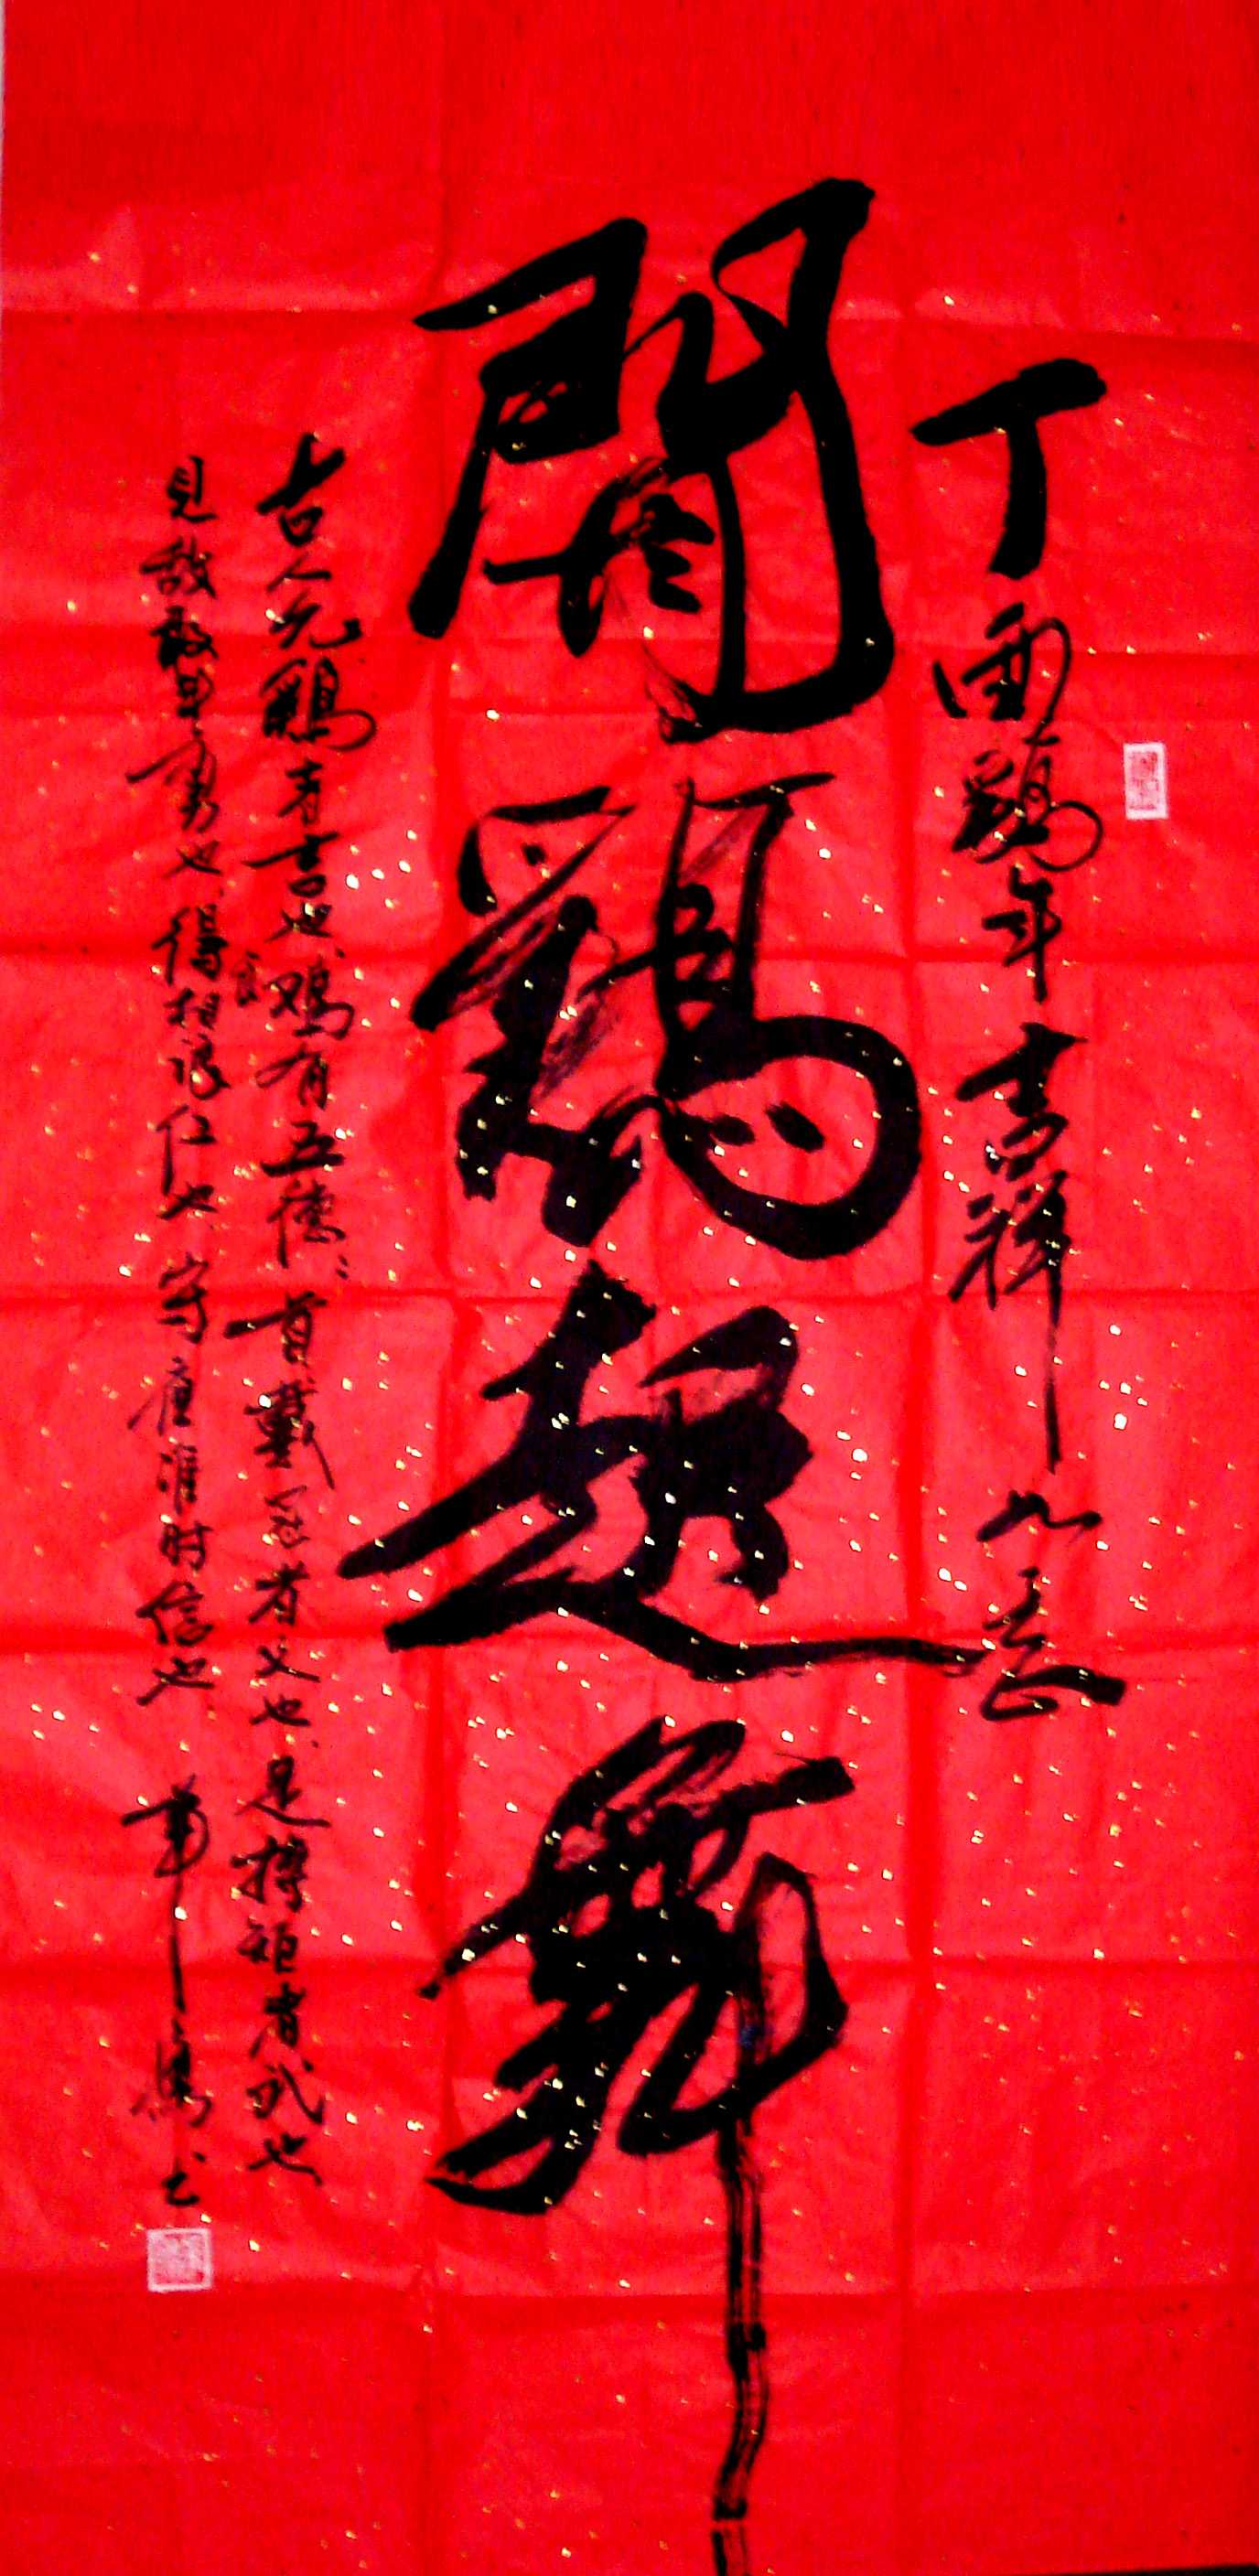 丁酉鷄年吉祥如意
聞鷄起舞
古人云鷄者吉也鸡有五德首戴冠者文也足搏距者武也
見敌敢鬥勇也得食相呼仁也守夜準时信也